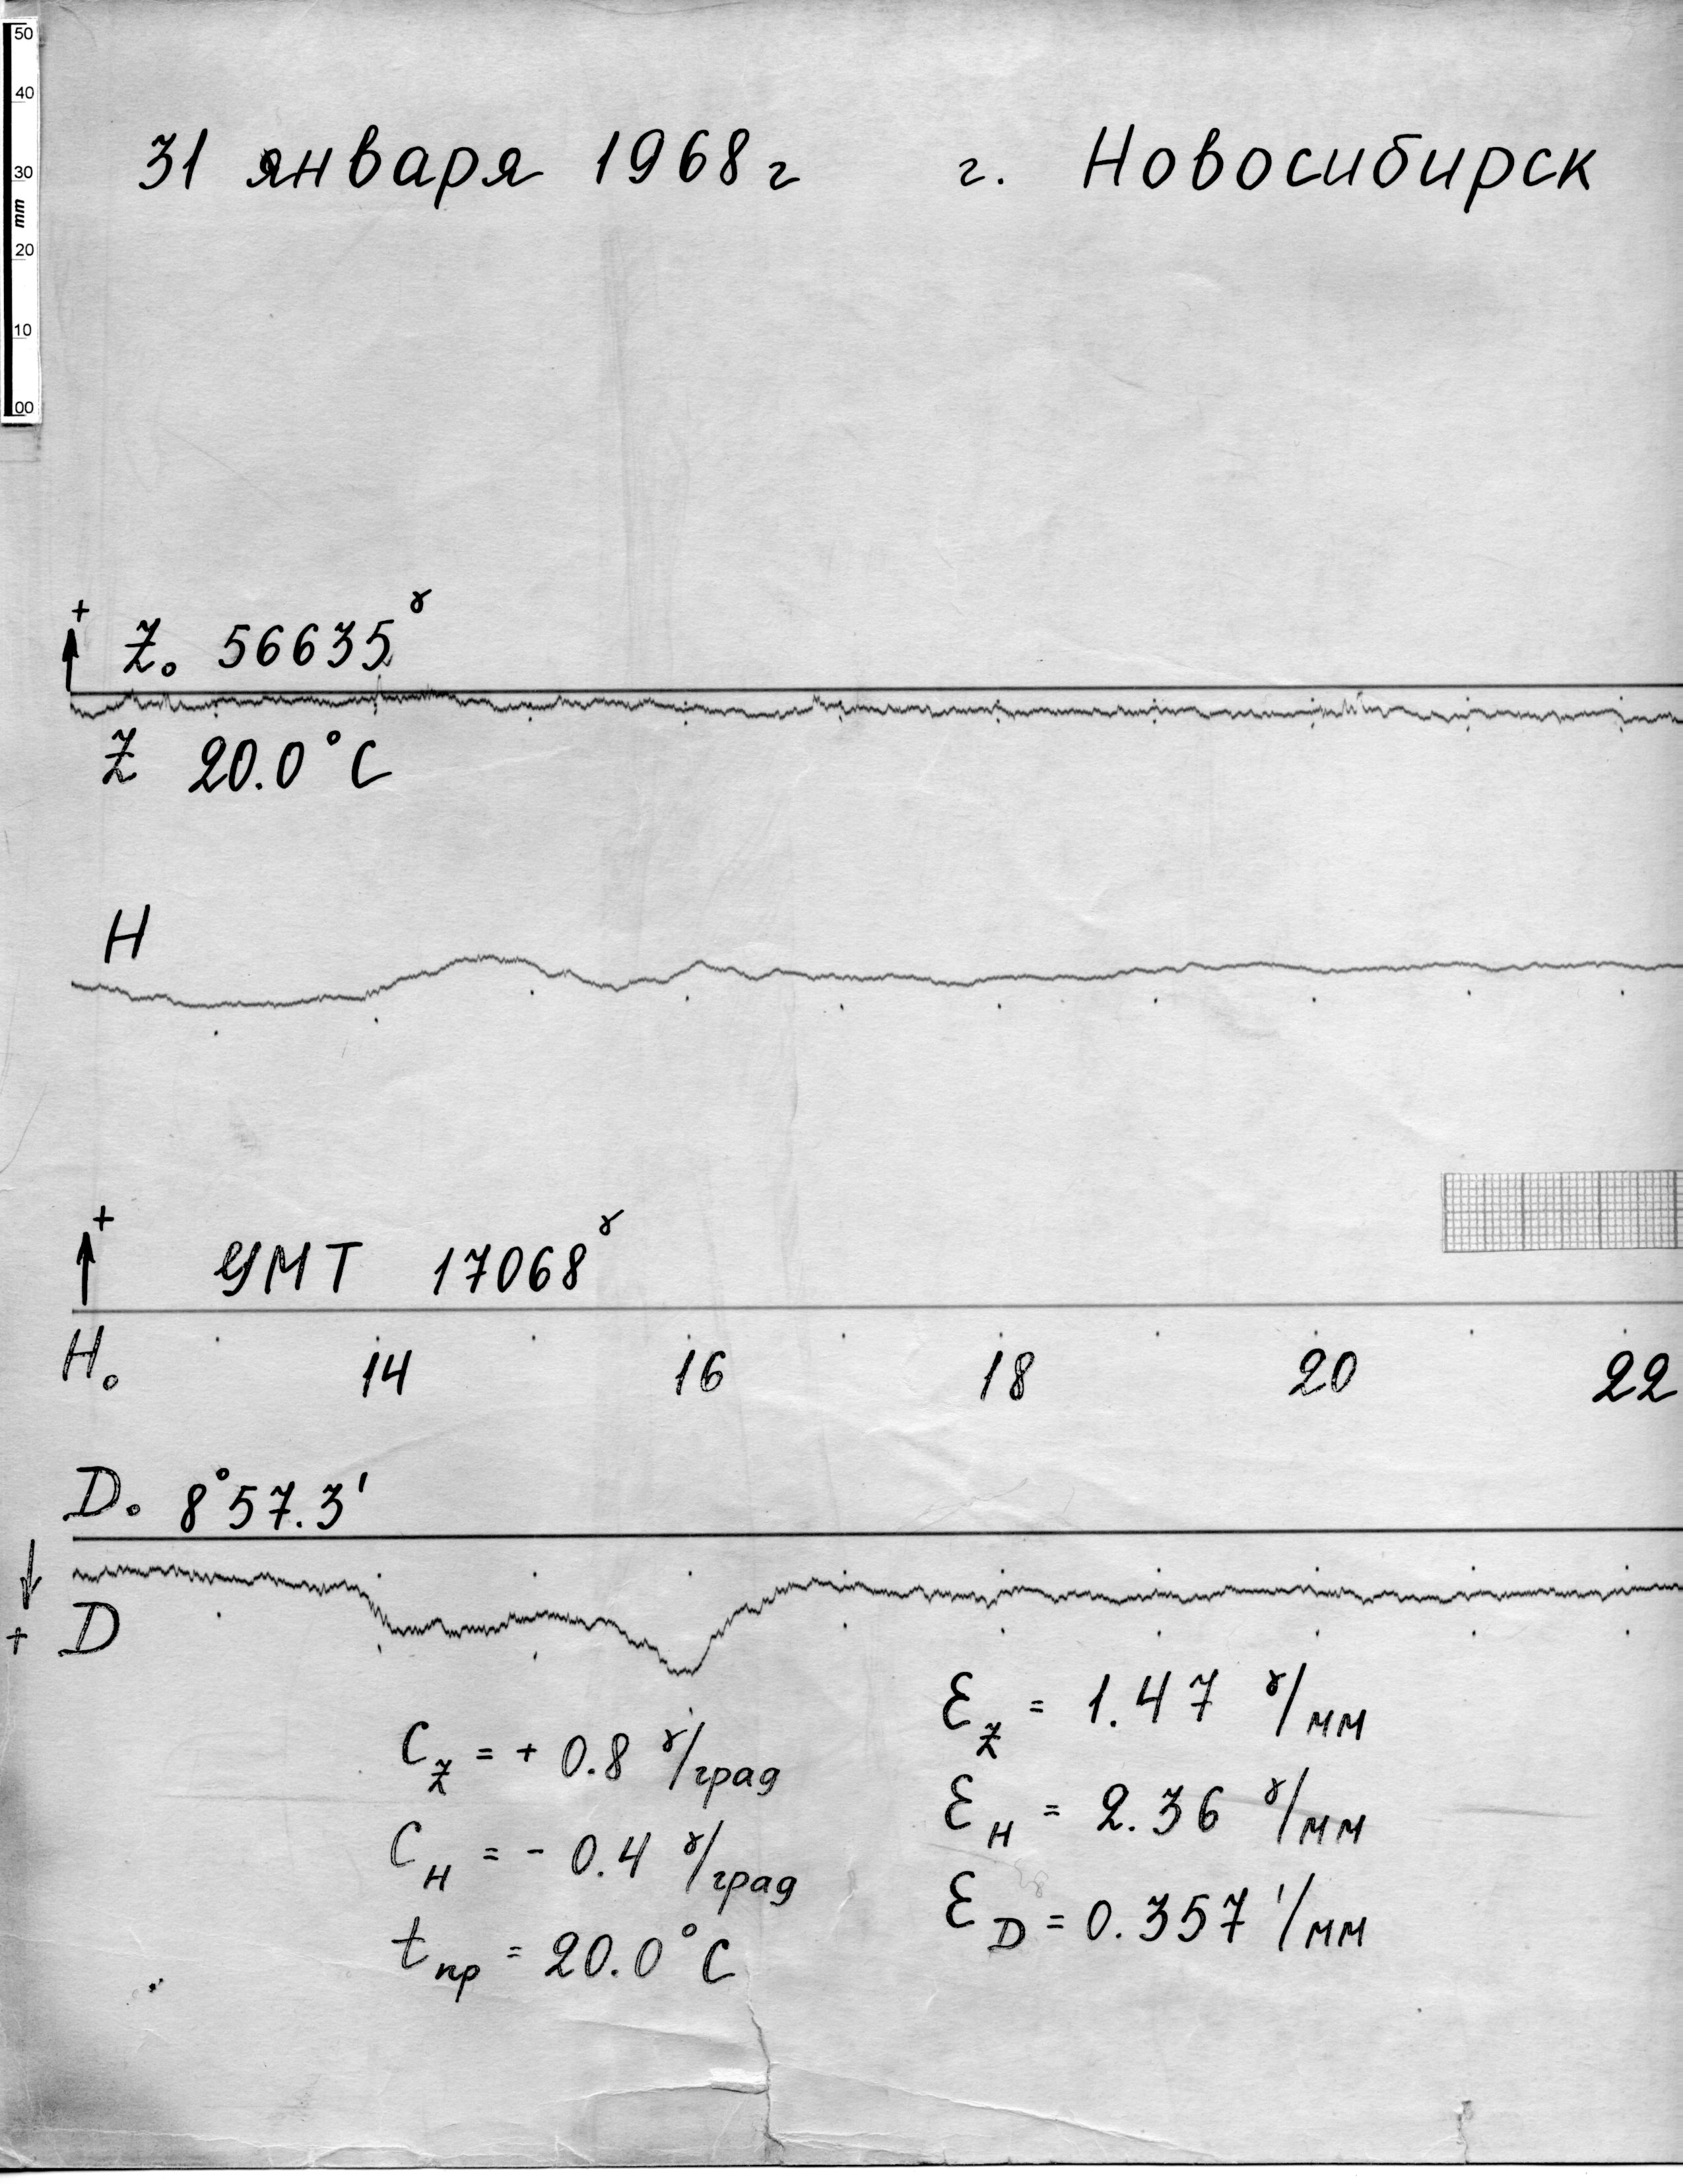 50
40
30
mm
20
10
00
31 января 1968 г г. Новосибирск
+ Z₀ 56635ˠ
Z 20.0°C
H
+
УМТ 17068ˠ
H₀ 14 16 18 20 22
D₀ 8°57.3'
+ D
C_Z = + 0.8 γ/град
C_H = - 0.4 γ/град
t_пр = 20.0°C
Ɛ_Z = 1.47 γ/мм
Ɛ_H = 2.36 γ/мм
Ɛ_D = 0.357 '/мм